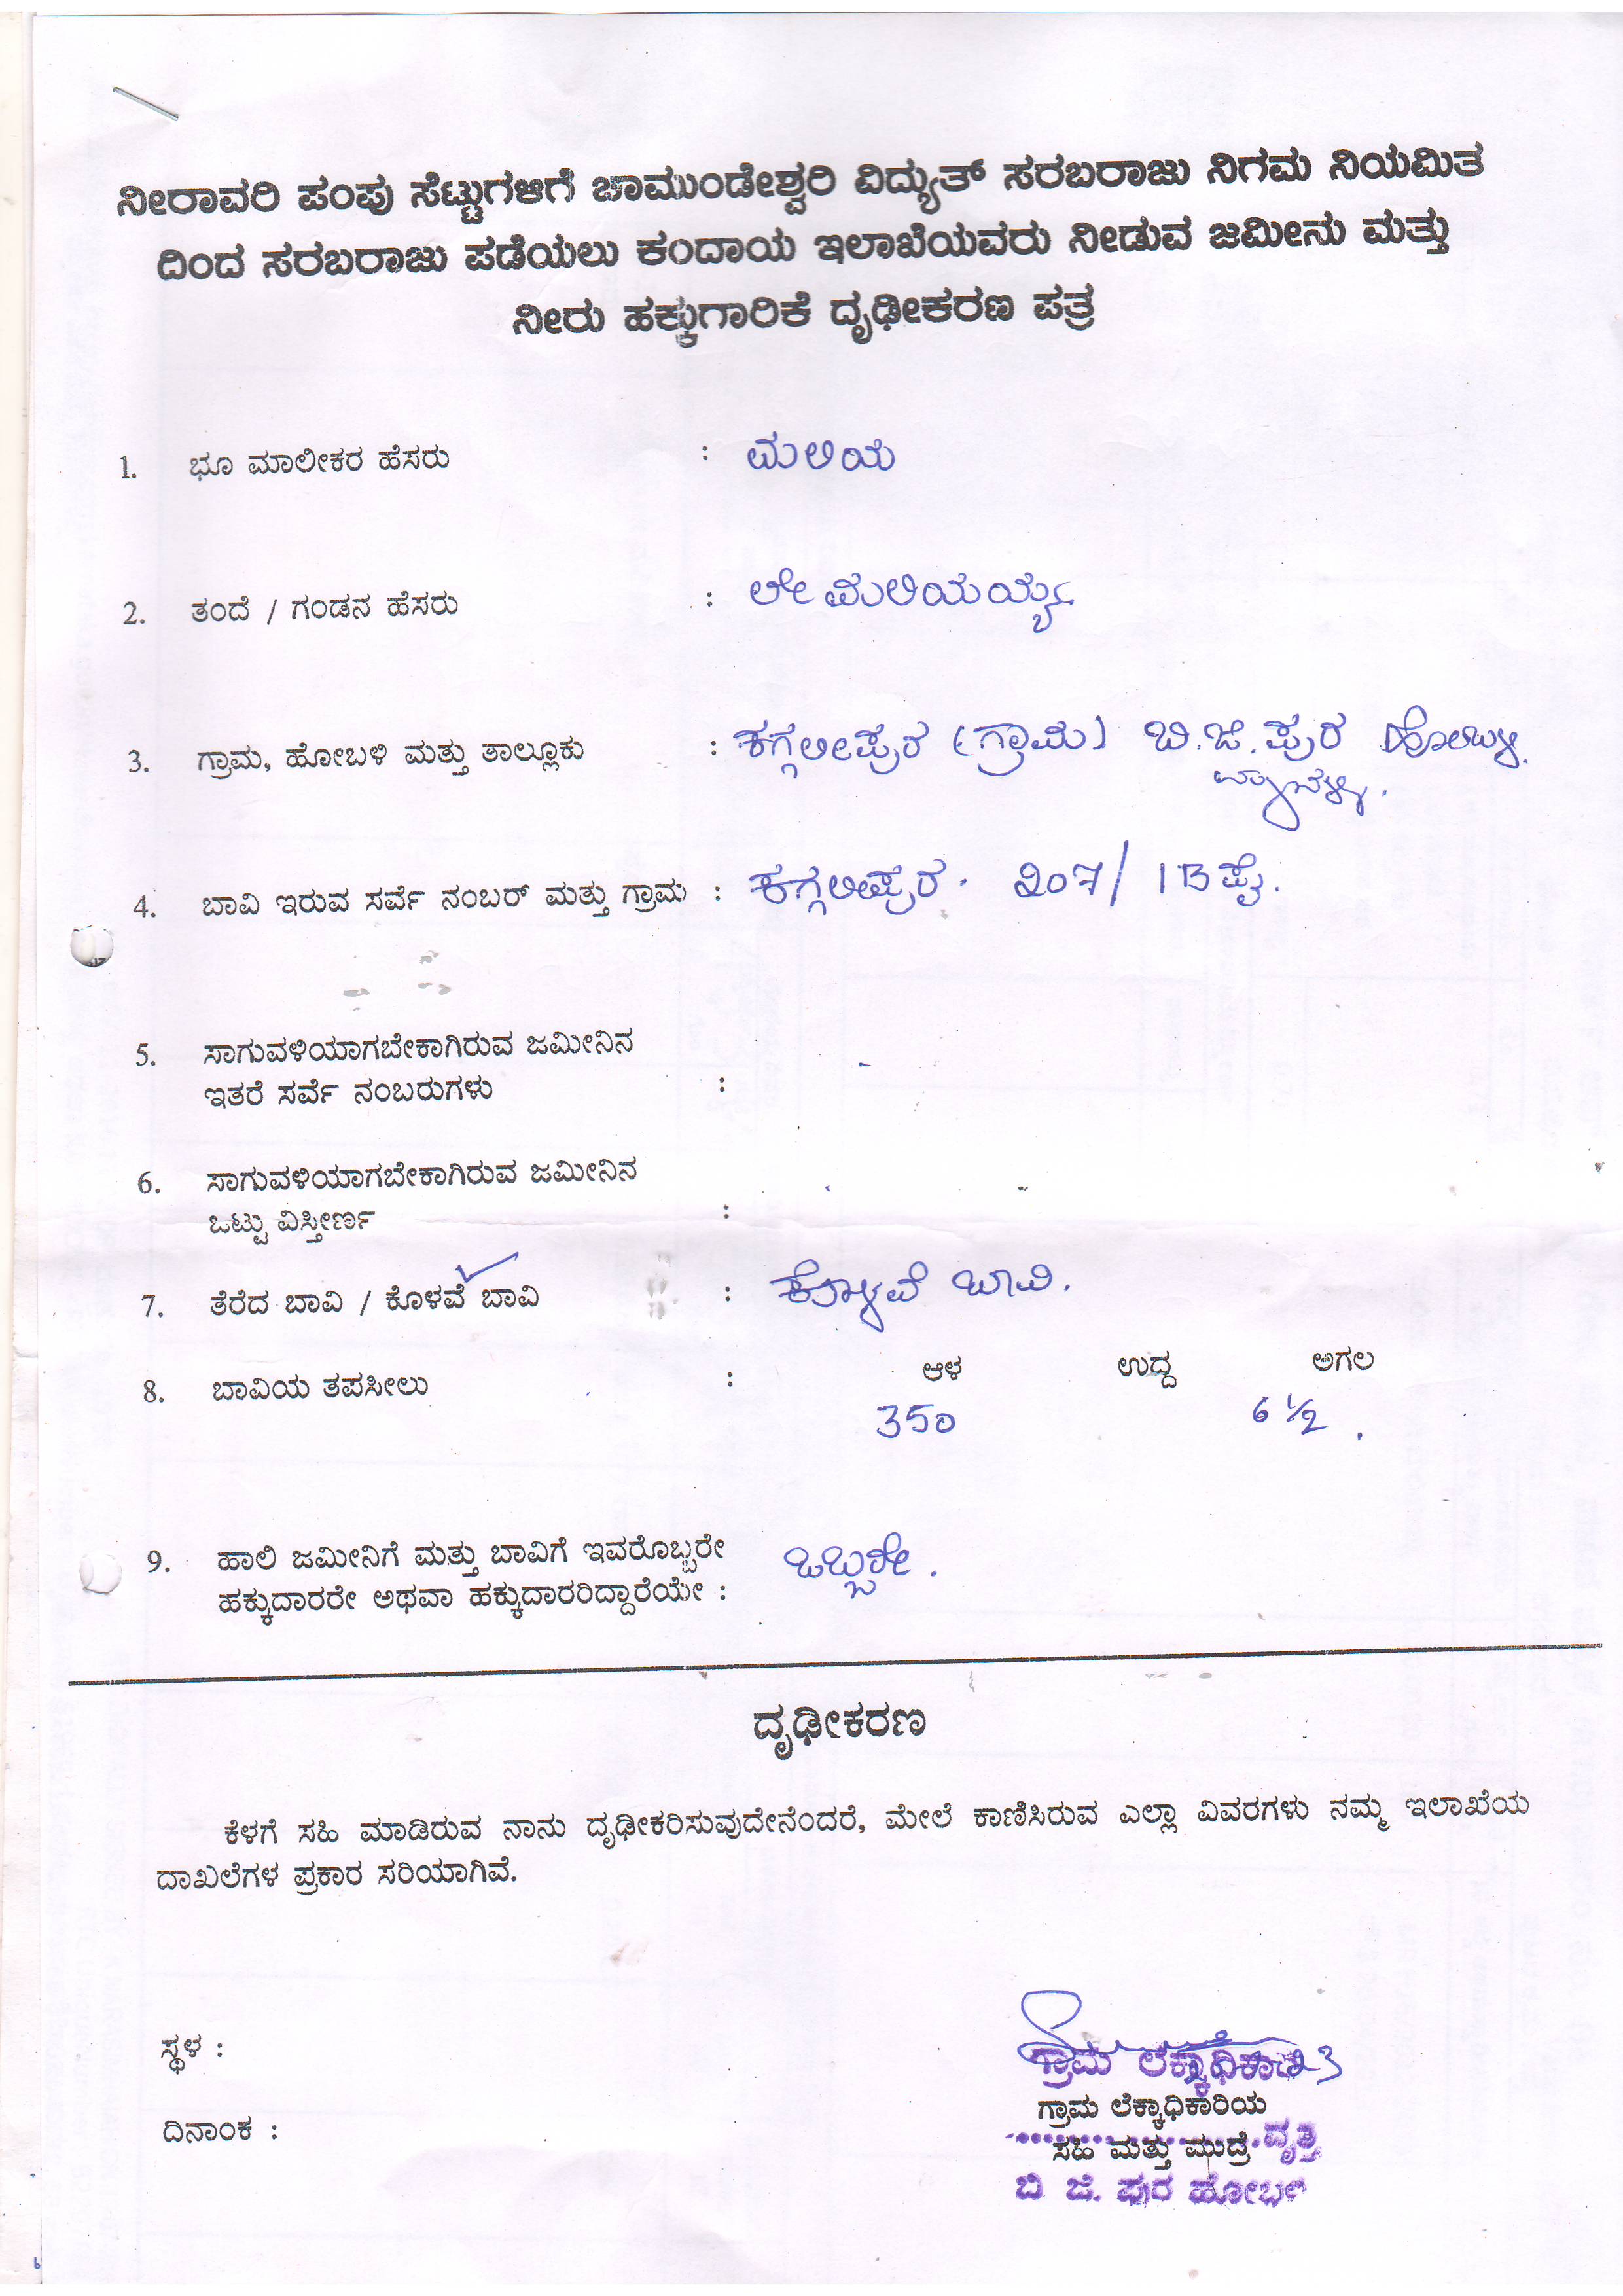 ನೀರಾವರಿ ಪಂಪು ಸೆಟ್ಟುಗಳಿಗೆ ಚಾಮುಂಡೇಶ್ವರಿ ವಿದ್ಯುತ್ ಸರಬರಾಜು ನಿಗಮ ನಿಯಮಿತ
ದಿಂದ ಸರಬರಾಜು ಪಡೆಯಲು ಕಂದಾಯ ಇಲಾಖೆಯವರು ನೀಡುವ ಜಮೀನು ಮತ್ತು
ನೀರು ಹಕ್ಕುಗಾರಿಕೆ ದೃಢೀಕರಣ ಪತ್ರ
1. ಭೂ ಮಾಲೀಕರ ಹೆಸರು : ಮಲಿಯ
2. ತಂದೆ / ಗಂಡನ ಹೆಸರು : ಲೇ ಮಲಿಯಯ್ಯ
3. ಗ್ರಾಮ, ಹೋಬಳಿ ಮತ್ತು ತಾಲ್ಲೂಕು : ಕಗ್ಗಲೀಪುರ (ಗ್ರಾಮ) ಬಿ.ಜಿ.ಪುರ ಹೋಬಳಿ
4. ಬಾವಿ ಇರುವ ಸರ್ವೆ ನಂಬರ್ ಮತ್ತು ಗ್ರಾಮ : ಕಗ್ಗಲೀಪುರ. 207/1B ಪೈ.
5. ಸಾಗುವಳಿಯಾಗಬೇಕಾಗಿರುವ ಜಮೀನಿನ
ಇತರೆ ಸರ್ವೆ ನಂಬರುಗಳು :
6. ಸಾಗುವಳಿಯಾಗಬೇಕಾಗಿರುವ ಜಮೀನಿನ
ಒಟ್ಟು ವಿಸ್ತೀರ್ಣ :
7. ತೆರೆದ ಬಾವಿ / ಕೊಳವೆ ಬಾವಿ : ಕೊಳವೆ ಬಾವಿ.
8. ಬಾವಿಯ ತಪಸೀಲು : ಆಳ ಉದ್ದ ಅಗಲ
350 6 1/2
9. ಹಾಲಿ ಜಮೀನಿಗೆ ಮತ್ತು ಬಾವಿಗೆ ಇವರೊಬ್ಬರೇ ಒಬ್ಬರೇ.
ಹಕ್ಕುದಾರರೇ ಅಥವಾ ಹಕ್ಕುದಾರರಿದ್ದಾರೆಯೇ :
ದೃಢೀಕರಣ
ಕೆಳಗೆ ಸಹಿ ಮಾಡಿರುವ ನಾನು ದೃಢೀಕರಿಸುವುದೇನೆಂದರೆ, ಮೇಲೆ ಕಾಣಿಸಿರುವ ಎಲ್ಲಾ ವಿವರಗಳು ನಮ್ಮ ಇಲಾಖೆಯ
ದಾಖಲೆಗಳ ಪ್ರಕಾರ ಸರಿಯಾಗಿವೆ.
ಸ್ಥಳ :
ಗ್ರಾಮ ಲೆಕ್ಕಾಧಿಕಾರಿ
ಗ್ರಾಮ ಲೆಕ್ಕಾಧಿಕಾರಿಯ
ದಿನಾಂಕ :
ಸಹಿ ಮತ್ತು ಮುದ್ರೆ ವೃತ್ತ
ಬಿ. ಜಿ. ಪುರ ಹೋಬಳಿ